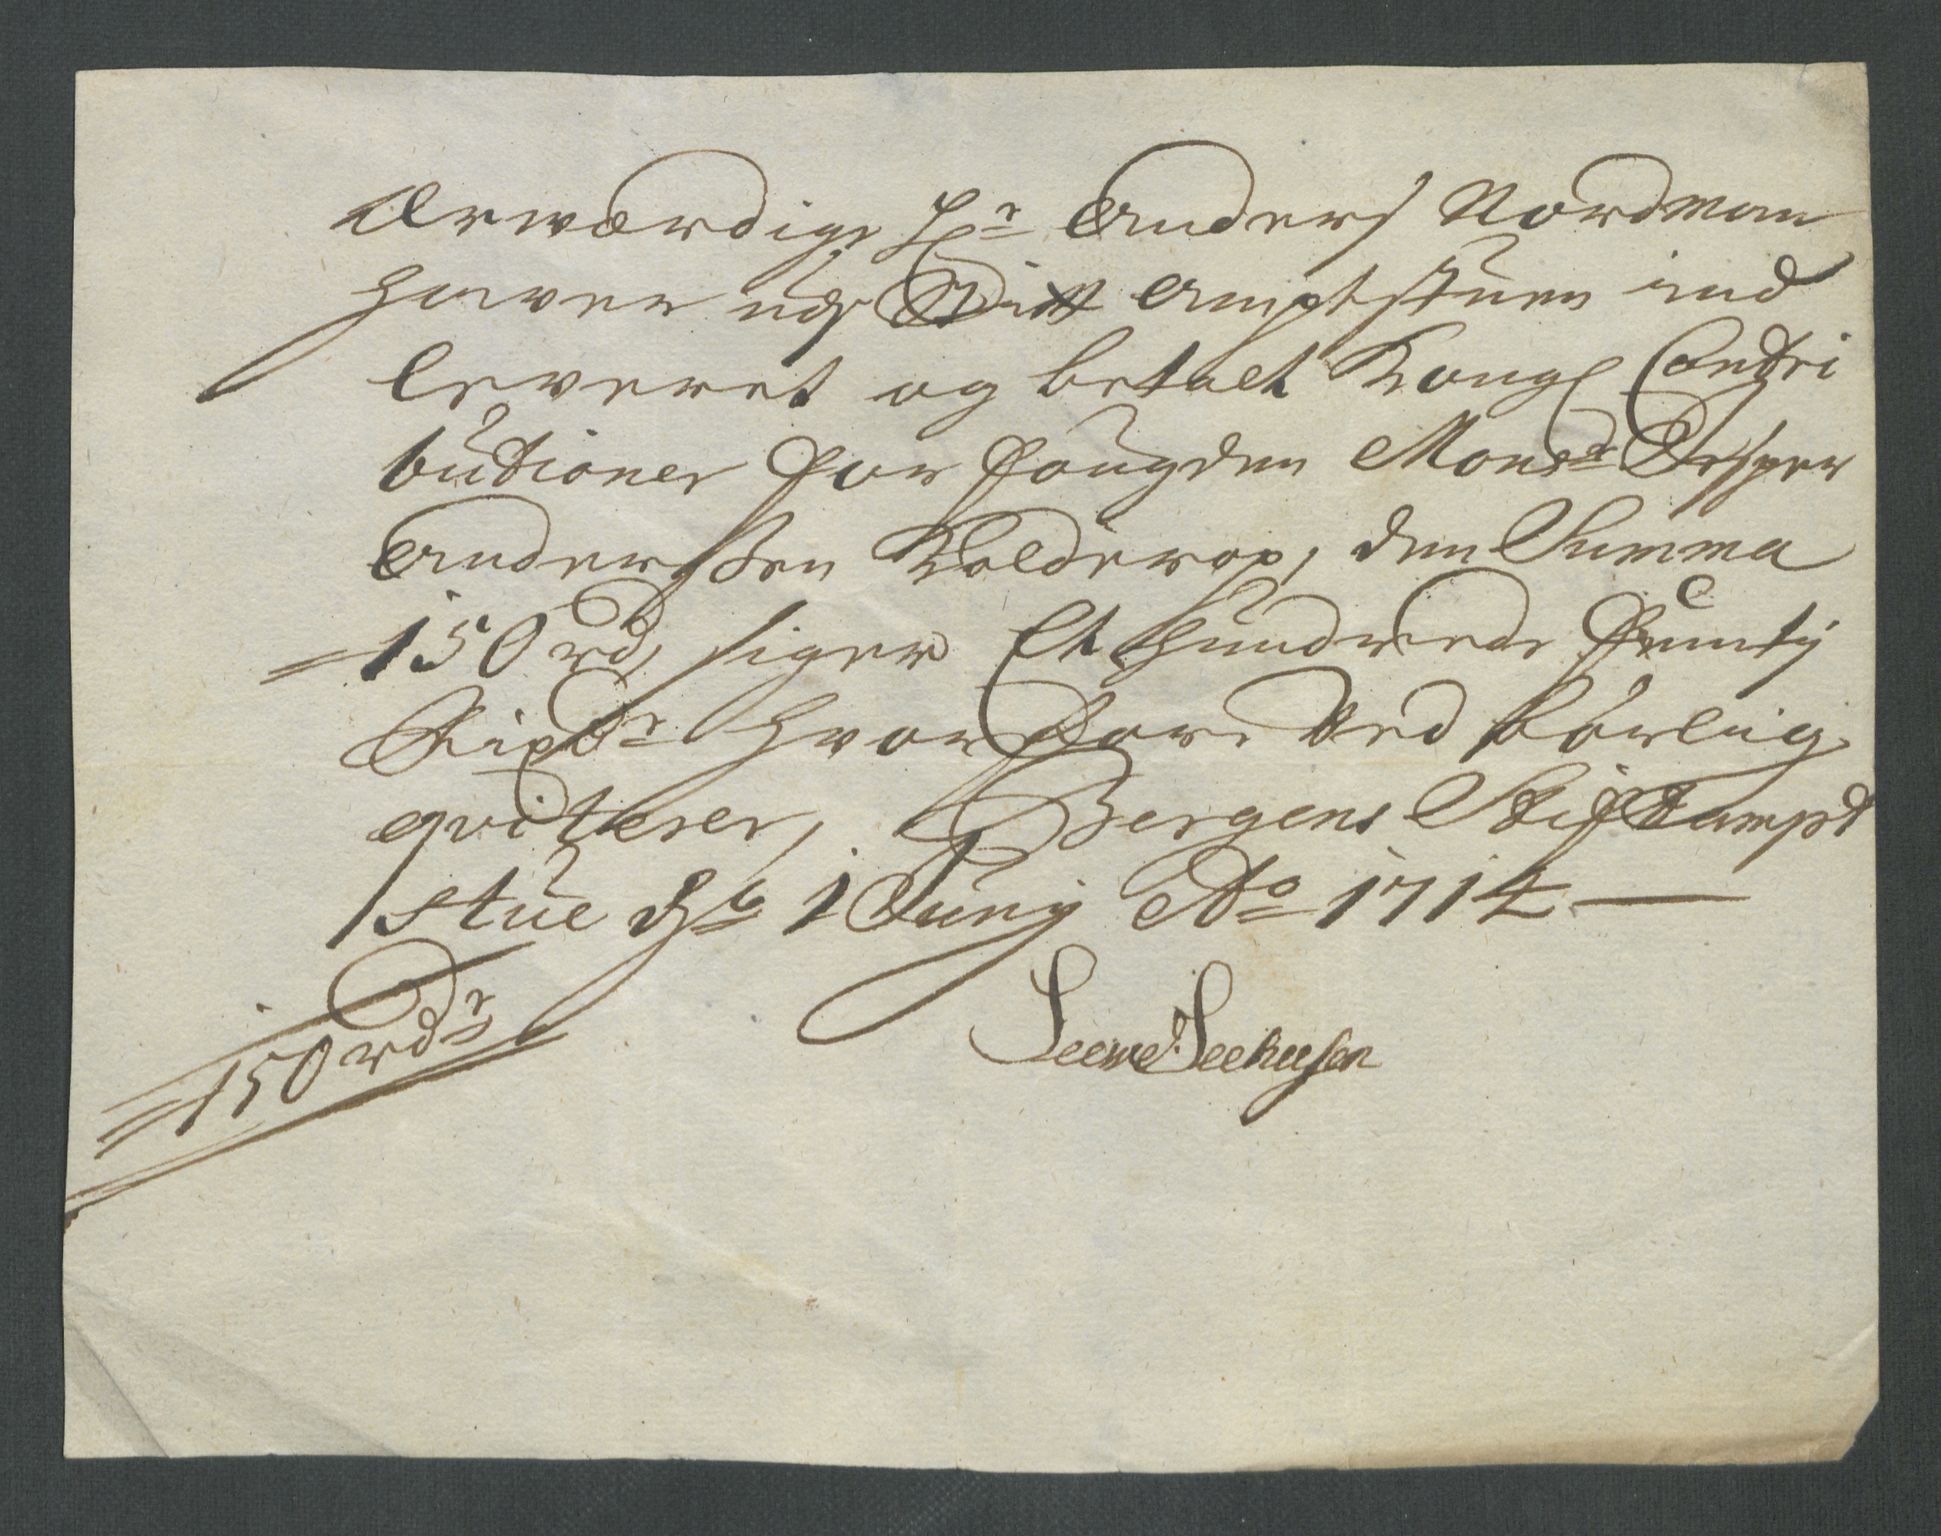 Ærwærdige Hr Anders Nordman
hawer udj Stift Amptstuen ind
leveret og betalt Kongl Contri
butioner for fougden Monsr Jesper
Anderssen Kolderop, den Summa
150 rd, siger Et hundrede femty
Rixdr hvorfore ved børlig
qviterer, Bergens Stiftampt
stue d 1 Junij Ao 1714
Seewe Seehusen
150 rdr